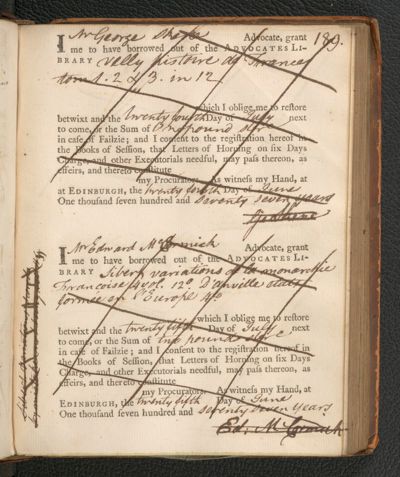 189.
I Mr George Advocate, grant
me to have borrowed out of the ADVOCATES LI-
BRARY Velly histoire de France
tom 1. 2 & 3. in 12
which I oblige me to reſtore
betwixt and the twenty fourth Day of July next
to come, or the Sum of One pound Ster
in caſe of Failzie; and I conſent to the regiſtration hereof in
the Books of Seſſion, that Letters of Horning on ſix Days
Charge, and other Executorials needful, may paſs thereon, as
effeirs, and thereto conſtitute
my Procurators. As witneſs my Hand, at
at EDINBURGH, the twenty fourth Day of June
One thouſand ſeven hundred and Seventy Seven years
I Mr Edward McCormick Advocate, grant
me to have borrowed out of the ADVOCATES LI-
BRARY Sibert variations de la monarchie
Francoise 4 vol. 12o. D'anville etats
formés en l'Europe 4o
which I oblige me to reſtore
betwixt and the twenty fifth Day of July next
to come, or the Sum of two pound
in caſe of Failzie; and I conſent to the regiſtration hereof in
the Books of Seſſion, that Letters of Horning on ſix Days
Charge, and other Executorials needful, may paſs thereon, as
effeirs, and thereto conſtitute
my Procurators. As witneſs my Hand, at
EDINBURGH, the twenty fifth Day of June
One thouſand ſeven hundred and seventy seven years
Ed. McCormick